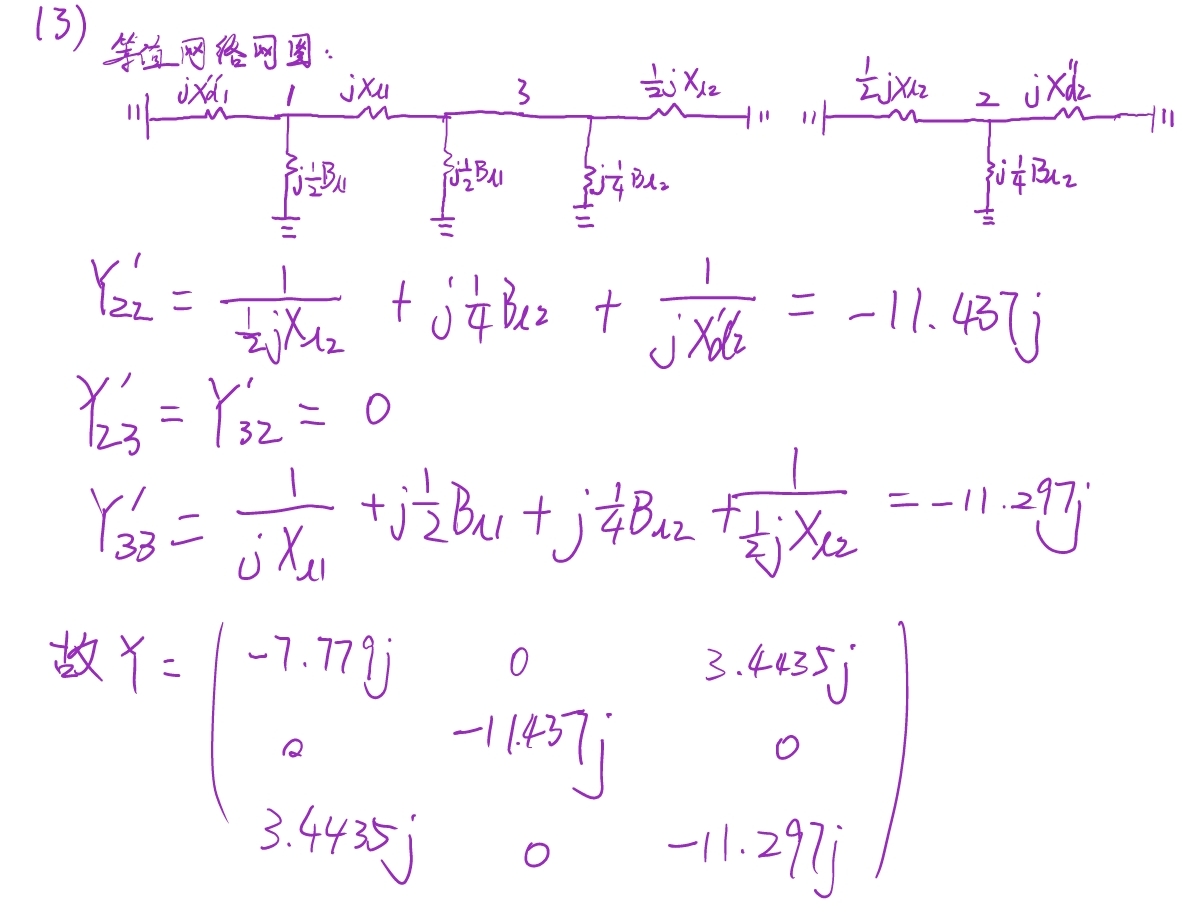 (3) 等值网络网图:
jX''d1 1 jXl1 3 ½jXl2 ½jXl2 2 jX''d2
j½Bl1 j½Bl1 j¼Bl2 j¼Bl2
Y'22 = 1/(½jXl2) + j¼Bl2 + 1/(jX''d2) = -11.437j
Y'23 = Y'32 = 0
Y'33 = 1/(jXl1) + j½Bl1 + j¼Bl2 + 1/(½jXl2) = -11.297j
故Y =
-7.779j 0 3.4435j
0 -11.437j 0
3.4435j 0 -11.297j